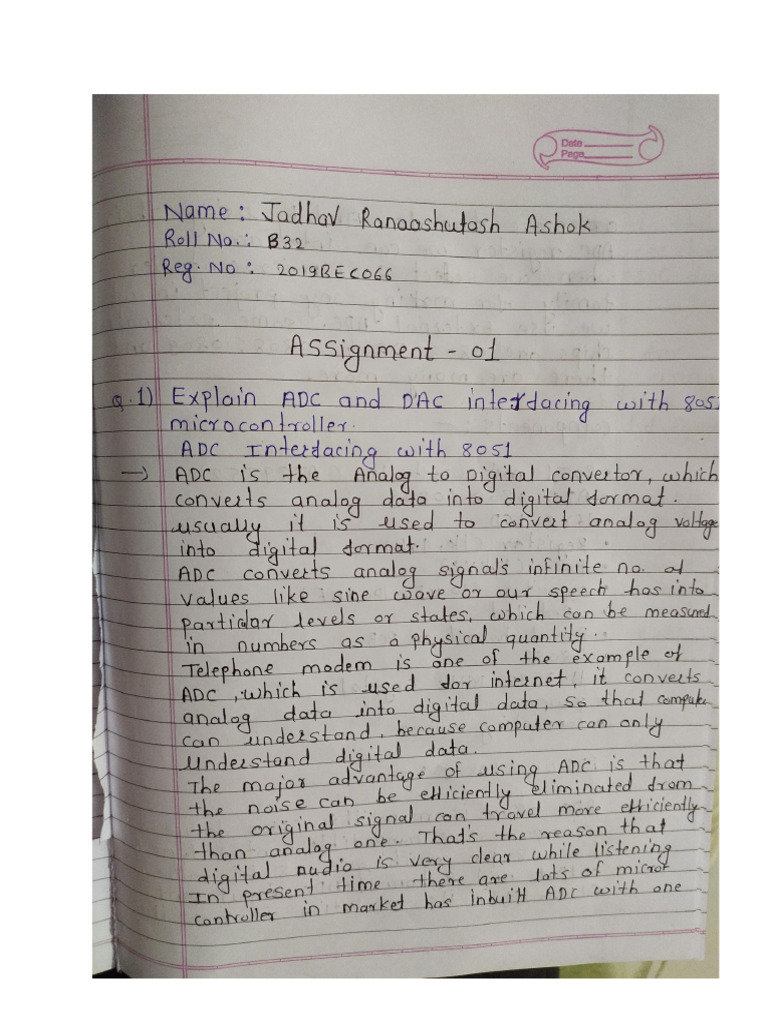 Date
Page
Name : Jadhav Ranaashutosh Ashok
Roll No. : B32
Reg. No : 2019BEC066
Assignment - 01
Q.1) Explain ADC and DAC interfacing with 8051
microcontroller.
ADC Interfacing with 8051
→ ADC is the Analog to Digital convertor, which
converts analog data into digital format.
usually it is used to convert analog voltage
into digital format.
ADC converts analog signal's infinite no. of
values like sine wave or our speech has into
particular levels or states, which can be measured
in numbers as a physical quantity.
Telephone modem is one of the example of
ADC, which is used for internet, it converts
analog data into digital data, so that computer
can understand, because computer can only
understand digital data.
The major advantage of using ADC is that
the noise can be efficiently eliminated from
the original signal can travel more efficiently
than analog one. That's the reason that
digital audio is very clear while listening
In present time there are lots of micro
controller in market has inbuilt ADC with one